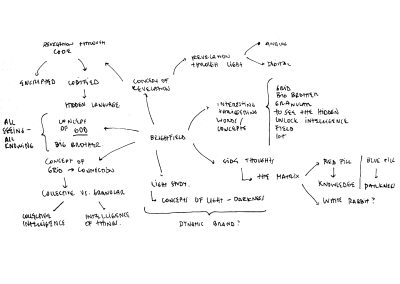 REVELATION THROUGH
CODE
ENCRYPTED
CODIFIED
HIDDEN LANGUAGE
CONCEPT OF
REVELATION
REVELATION
THROUGH LIGHT
ANALOG
DIGITAL
ALL
SEEING —
ALL
KNOWING
CONCEPT
OF GOD
BIG BROTHER
BRIGHTFIELD
INTERESTING
THREADING
WORDS/
CONCEPTS
GRID
BIG BROTHER
GRANULAR
TO SEE THE HIDDEN
UNLOCK INTELLIGENCE
FIELD
IOT
CONCEPT OF
GRID → CONNECTION
COLLECTIVE VS. GRANULAR
COLLECTIVE
INTELLIGENCE
INTELLIGENCE
OF THINGS
LIGHT STUDY
CONCEPTS OF LIGHT — DARKNESS
DYNAMIC BRAND?
SIDE THOUGHTS
THE MATRIX
RED PILL
KNOWLEDGE
BLUE PILL
DARKNESS
WHITE RABBIT?